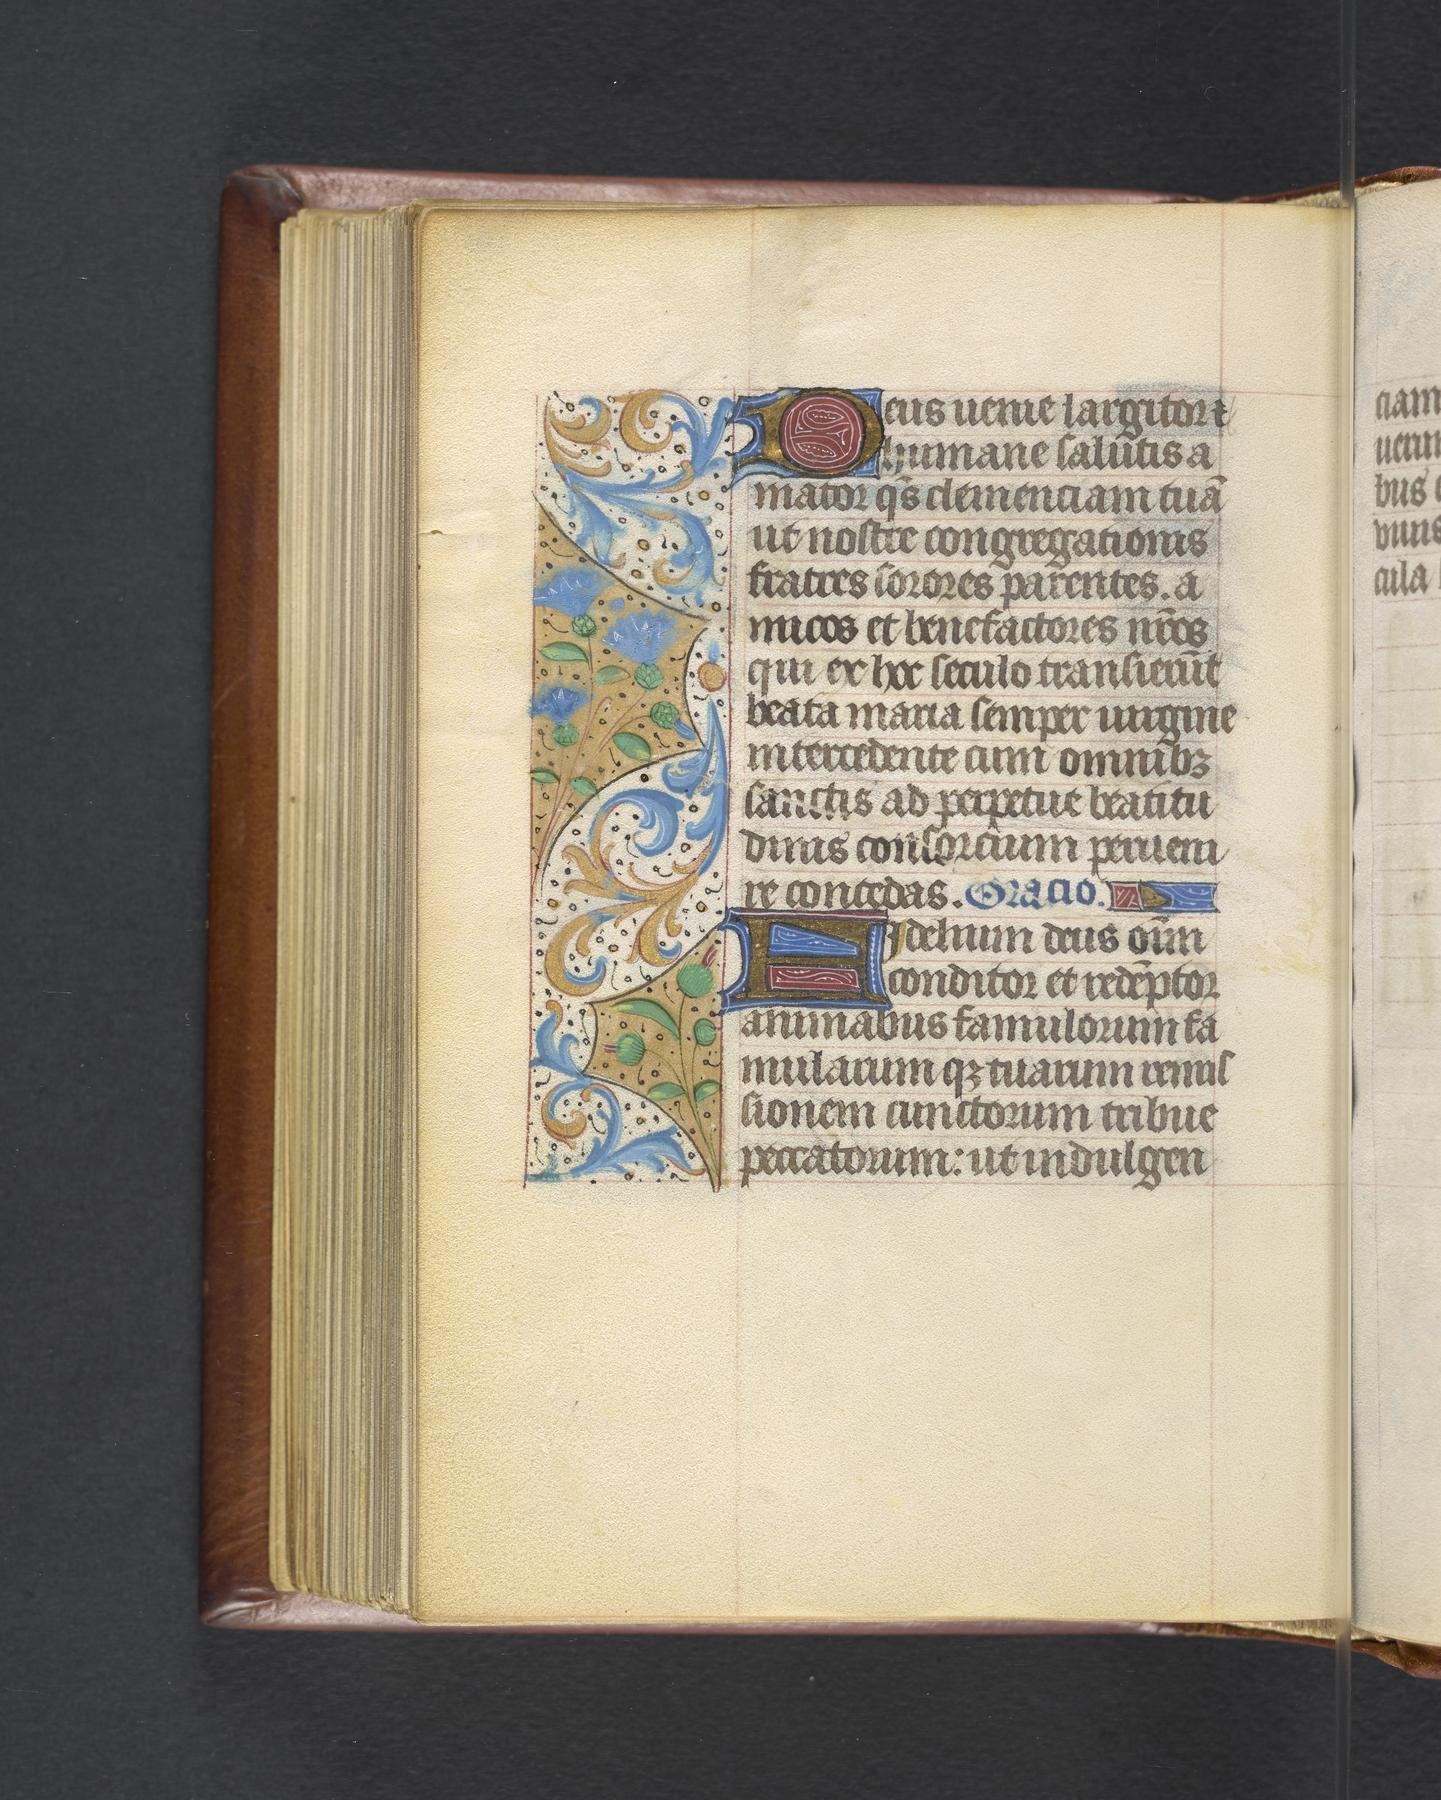 Deus uenie largitor et
humane salutis a
mator q̄s clemenciam tuā
ut nostre congregationis
fratres sorores parentes. a
micos et benefactores nr̄os
qui ex hoc seculo transierūt
beata maria semper uirgine
intercedente cum omnibꝫ
sanctis ad perpetue beatitu
dinis consorcium perueni
re concedas. Oracio.
Fidelium deus oīm
conditor et redēptor
animabus famulorum fa
mularum qꝫ tuarum remis
sionem cunctorum tribue
peccatorum: ut indulgen
ciam
bus
cula